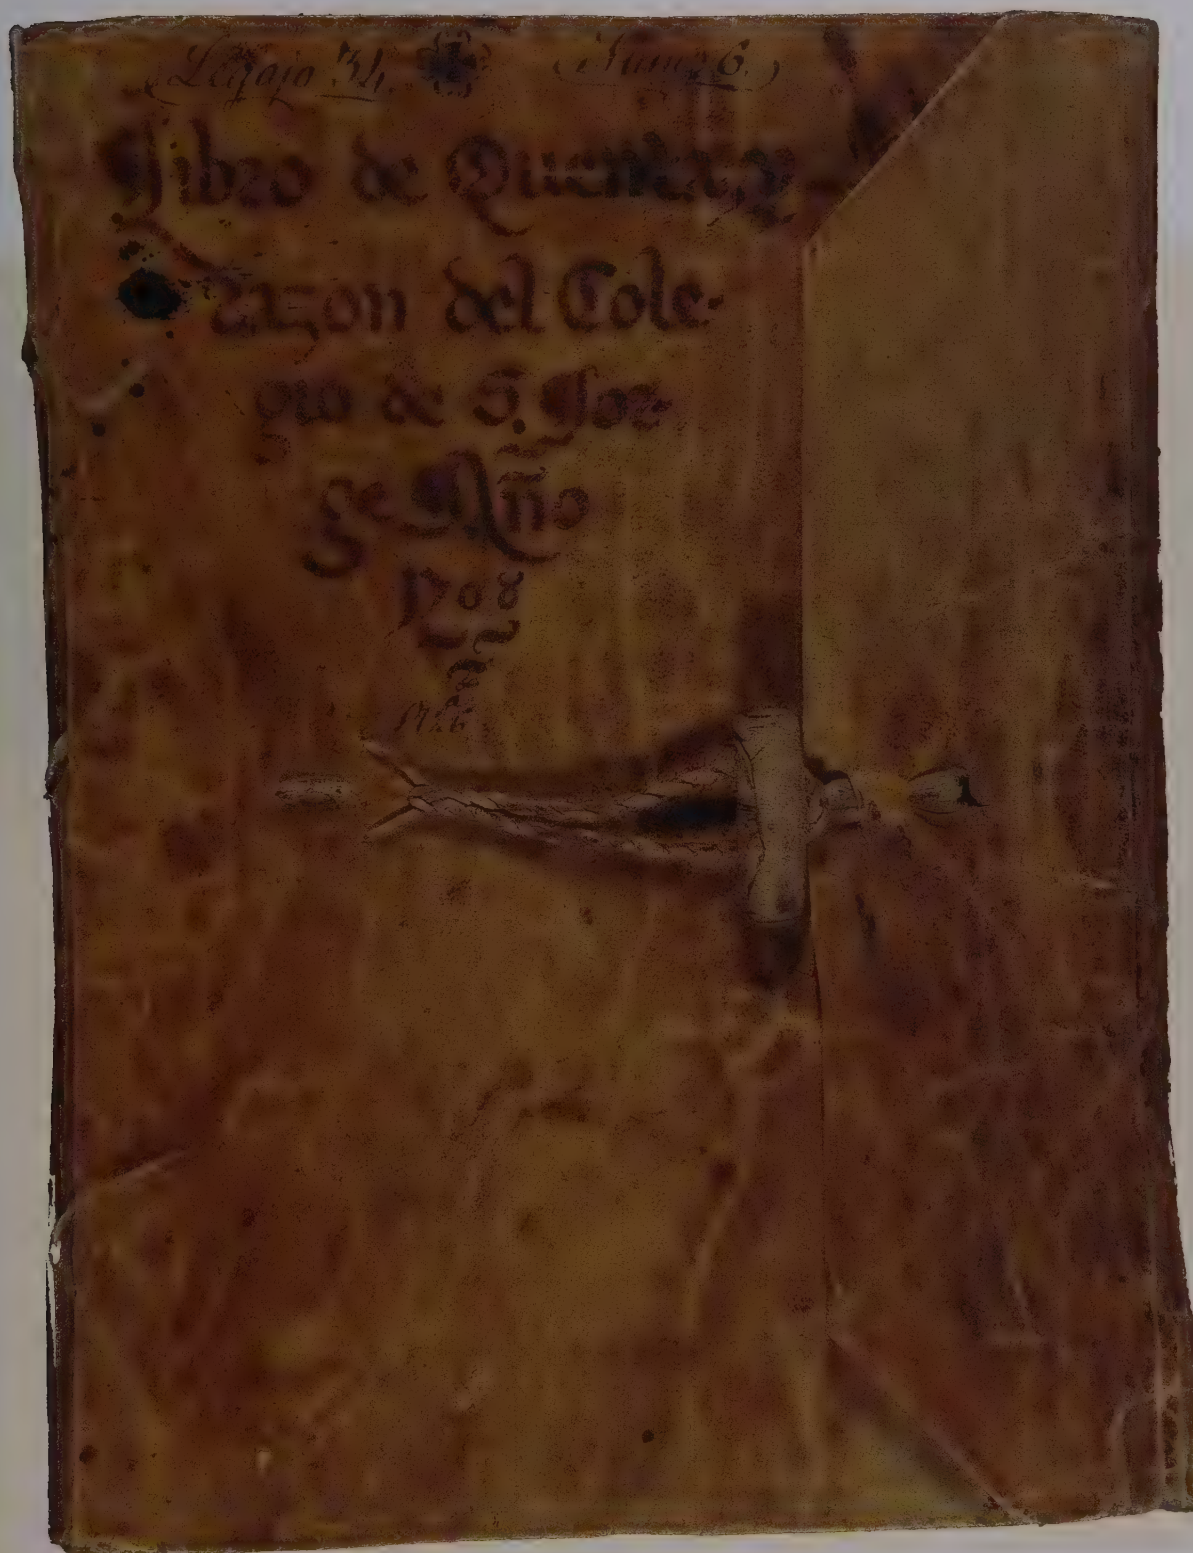 Legajo 34. Num.º 6.
Libro de Quenta, y
razon del Cole-
gio de S. Jor-
ge Año
1708